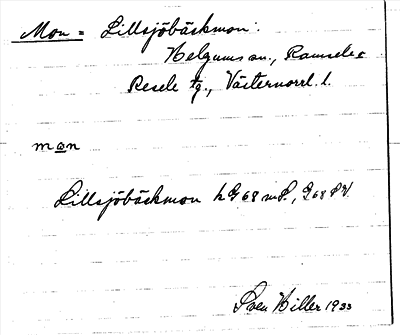 Mon = Lillsjöbäckmon:
Helgums sn., Ramsele o
Resele tg., Västernorrl. l.
mo̲n
Lillsjöbäckmon h G68 mS.,
Sven Hiller 1933